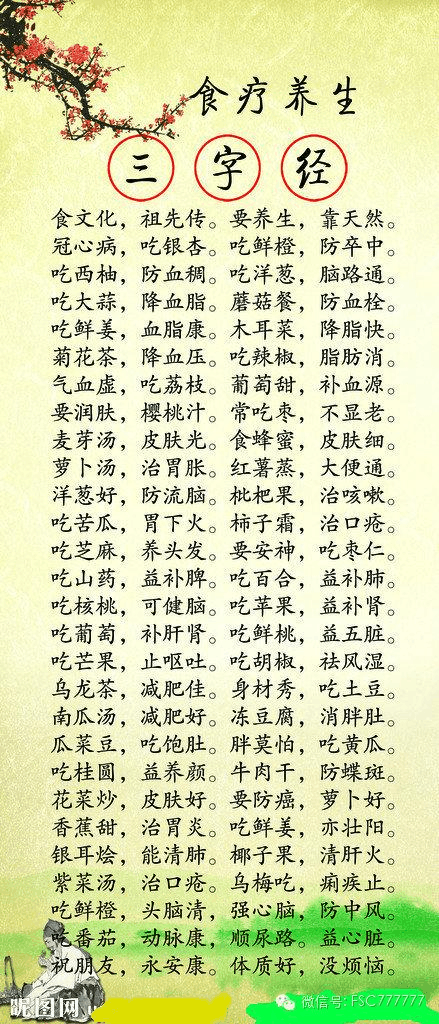 食疗养生
三字经
食文化，祖先传。要养生，靠天然。
冠心病，吃银杏。吃鲜橙，防卒中。
吃西柚，防血稠。吃洋葱，脑路通。
吃大蒜，降血脂。蘑菇餐，防血栓。
吃鲜姜，血脂康。木耳菜，降脂快。
菊花茶，降血压。吃辣椒，脂肪消。
气血虚，吃荔枝。葡萄甜，补血源。
要润肤，樱桃汁。常吃枣，不显老。
麦芽汤，皮肤光。食蜂蜜，皮肤细。
萝卜汤，治胃胀。红薯蒸，大便通。
洋葱好，防流脑。枇杷果，治咳嗽。
吃苦瓜，胃下火。柿子霜，治口疮。
吃芝麻，养头发。要安神，吃枣仁。
吃山药，益补脾。吃百合，益补肺。
吃核桃，可健脑。吃苹果，益补肾。
吃葡萄，补肝肾。吃鲜桃，益五脏。
吃芒果，止呕吐。吃胡椒，祛风湿。
乌龙茶，减肥佳。身材秀，吃土豆。
南瓜汤，减肥好。冻豆腐，消胖肚。
瓜菜豆，吃饱肚。胖莫怕，吃黄瓜。
吃桂圆，益养颜。牛肉干，防蝶斑。
花菜炒，皮肤好。要防癌，萝卜好。
香蕉甜，治胃炎。吃鲜姜，亦壮阳。
银耳烩，能清肺。椰子果，清肝火。
紫菜汤，治口疮。乌梅吃，痢疾止。
吃鲜橙，头脑清，强心脑，防中风。
吃番茄，动脉康，顺尿路。益心脏。
祝朋友，永安康。体质好，没烦恼。
昵图网
微信号: FSC777777